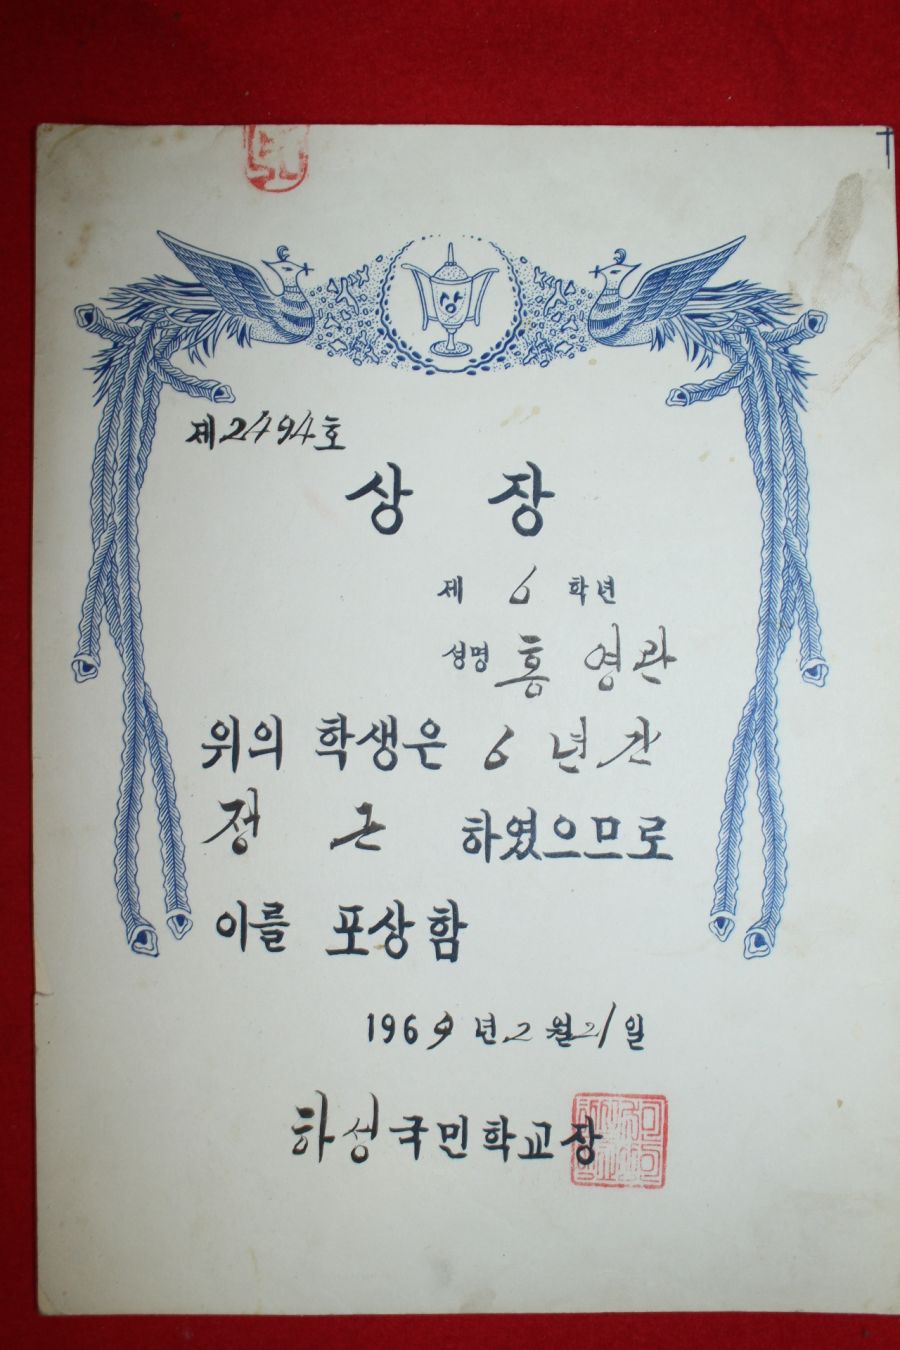 제2494호
상 장
제 6 학년
성명 홍 영관
위의 학생은 6 년간
정 근 하였으므로
이를 포상함
1969년 2월 21일
하성국민학교장